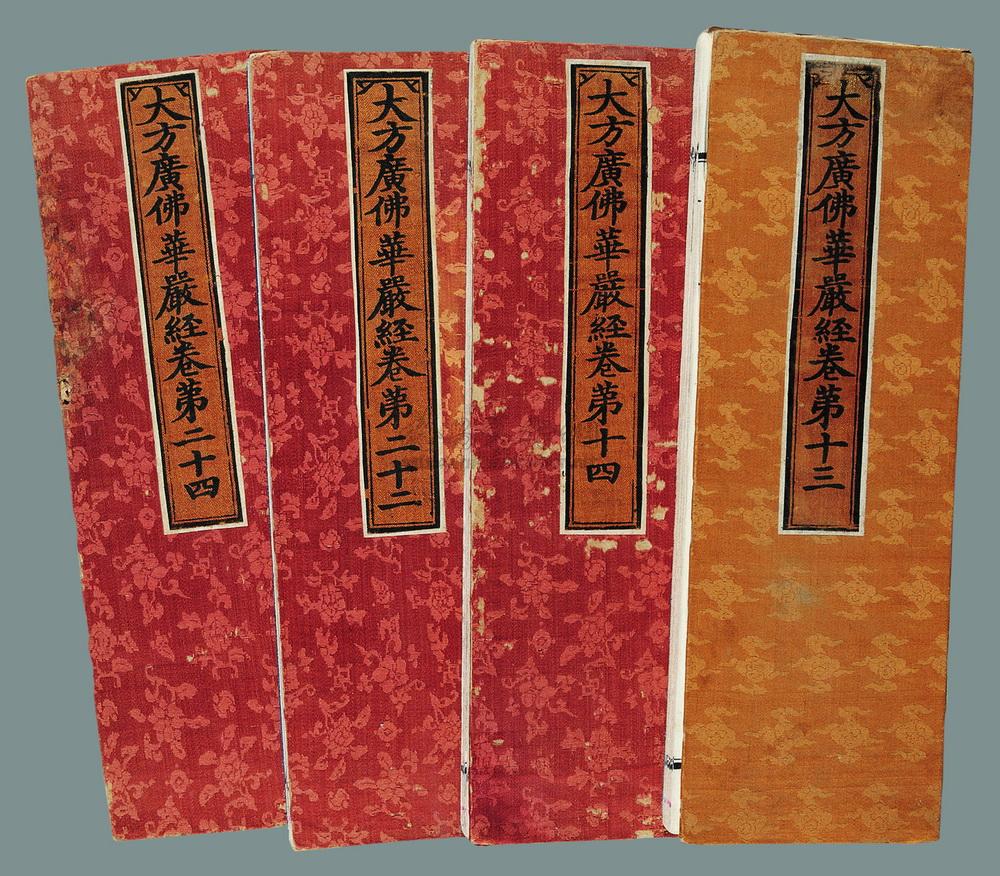 大方廣佛華嚴經卷第二十四
大方廣佛華嚴經卷第二十二
大方廣佛華嚴經卷苐十四
大方廣佛華嚴經卷第十三